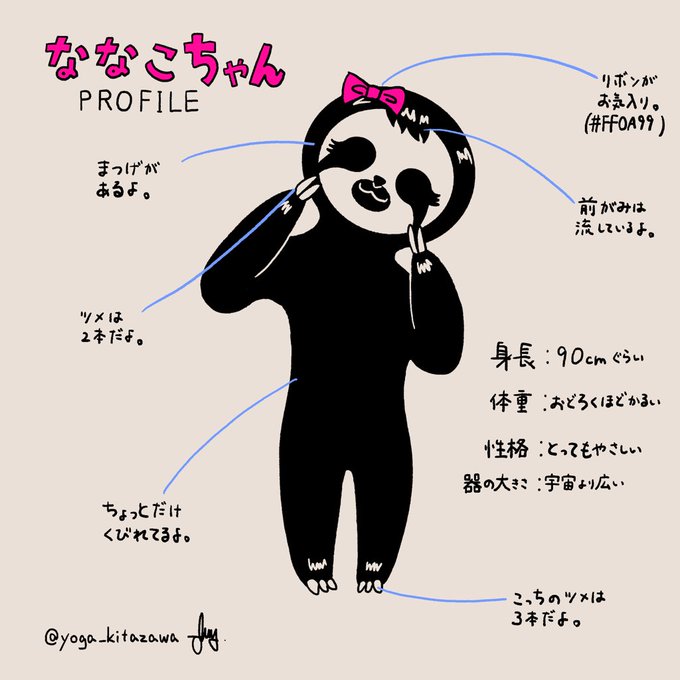 ななこちゃん
PROFILE
リボンが
お気入り。
(#FF0A99)
まつげが
あるよ。
前がみは
流しているよ。
ツメは
2本だよ。
身長：90cmぐらい
体重：おどろくほどかるい
性格：とってもやさしい
器の大きさ：宇宙より広い
ちょっとだけ
くびれてるよ。
こっちのツメは
3本だよ。
@yoga_kitazawa